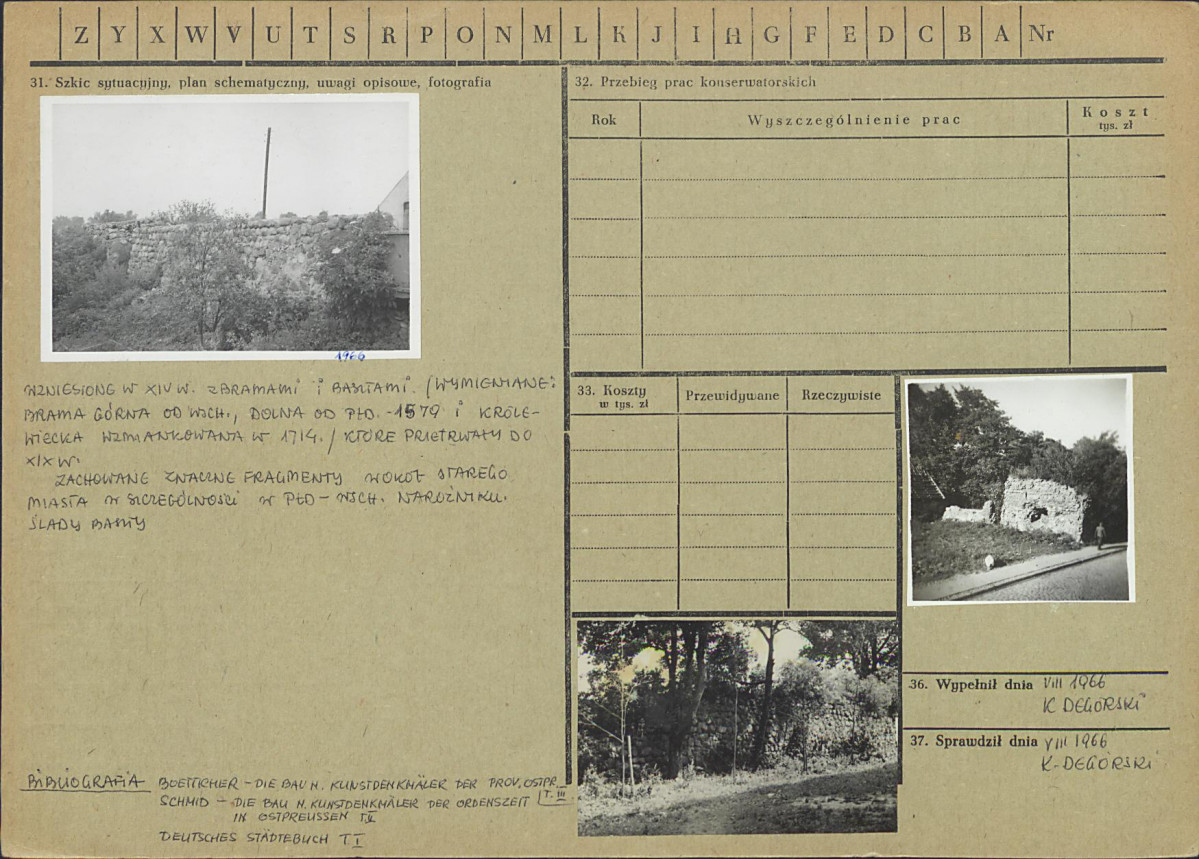 Z Y X W V U T S R P O N M L K J I H G F E D C B A Nr
31. Szkic sytuacyjny, plan schematyczny, uwagi opisowe, fotografia
1966
WZNIESIONE W XIV W. Z BRAMAMI I BASZTAMI. /WYMIENIANE:
BRAMA GÓRNA OD WSCH., DOLNA OD PŁD. - 1579 I KRÓLE-
WIECKA WZMIANKOWANA W 1714./ KTÓRE PRZETRWAŁY DO
XIX W.
ZACHOWANE ZNACZNE FRAGMENTY WOKÓŁ STAREGO
MIASTA W SZCZEGÓLNOŚCI W PŁD-WSCH. NAROŻNIKU.
ŚLADY BASZTY
BIBLIOGRAFIA BOETTICHER - DIE BAU N. KUNSTDENKMÄLER DER PROV. OSTPR.
T. III
SCHMID - DIE BAU N. KUNSTDENKMÄLER DER ORDENSZEIT
IN OSTPREUSSEN T. II
DEUTSCHES STÄDTEBUCH T I
32. Przebieg prac konserwatorskich
Rok Wyszczególnienie prac Koszt
tys. zł
33. Koszty Przewidywane Rzeczywiste
w tys. zł
36. Wypełnił dnia VIII 1966
K DEGÓRSKI
37. Sprawdził dnia VIII 1966
K. DEGÓRSKI